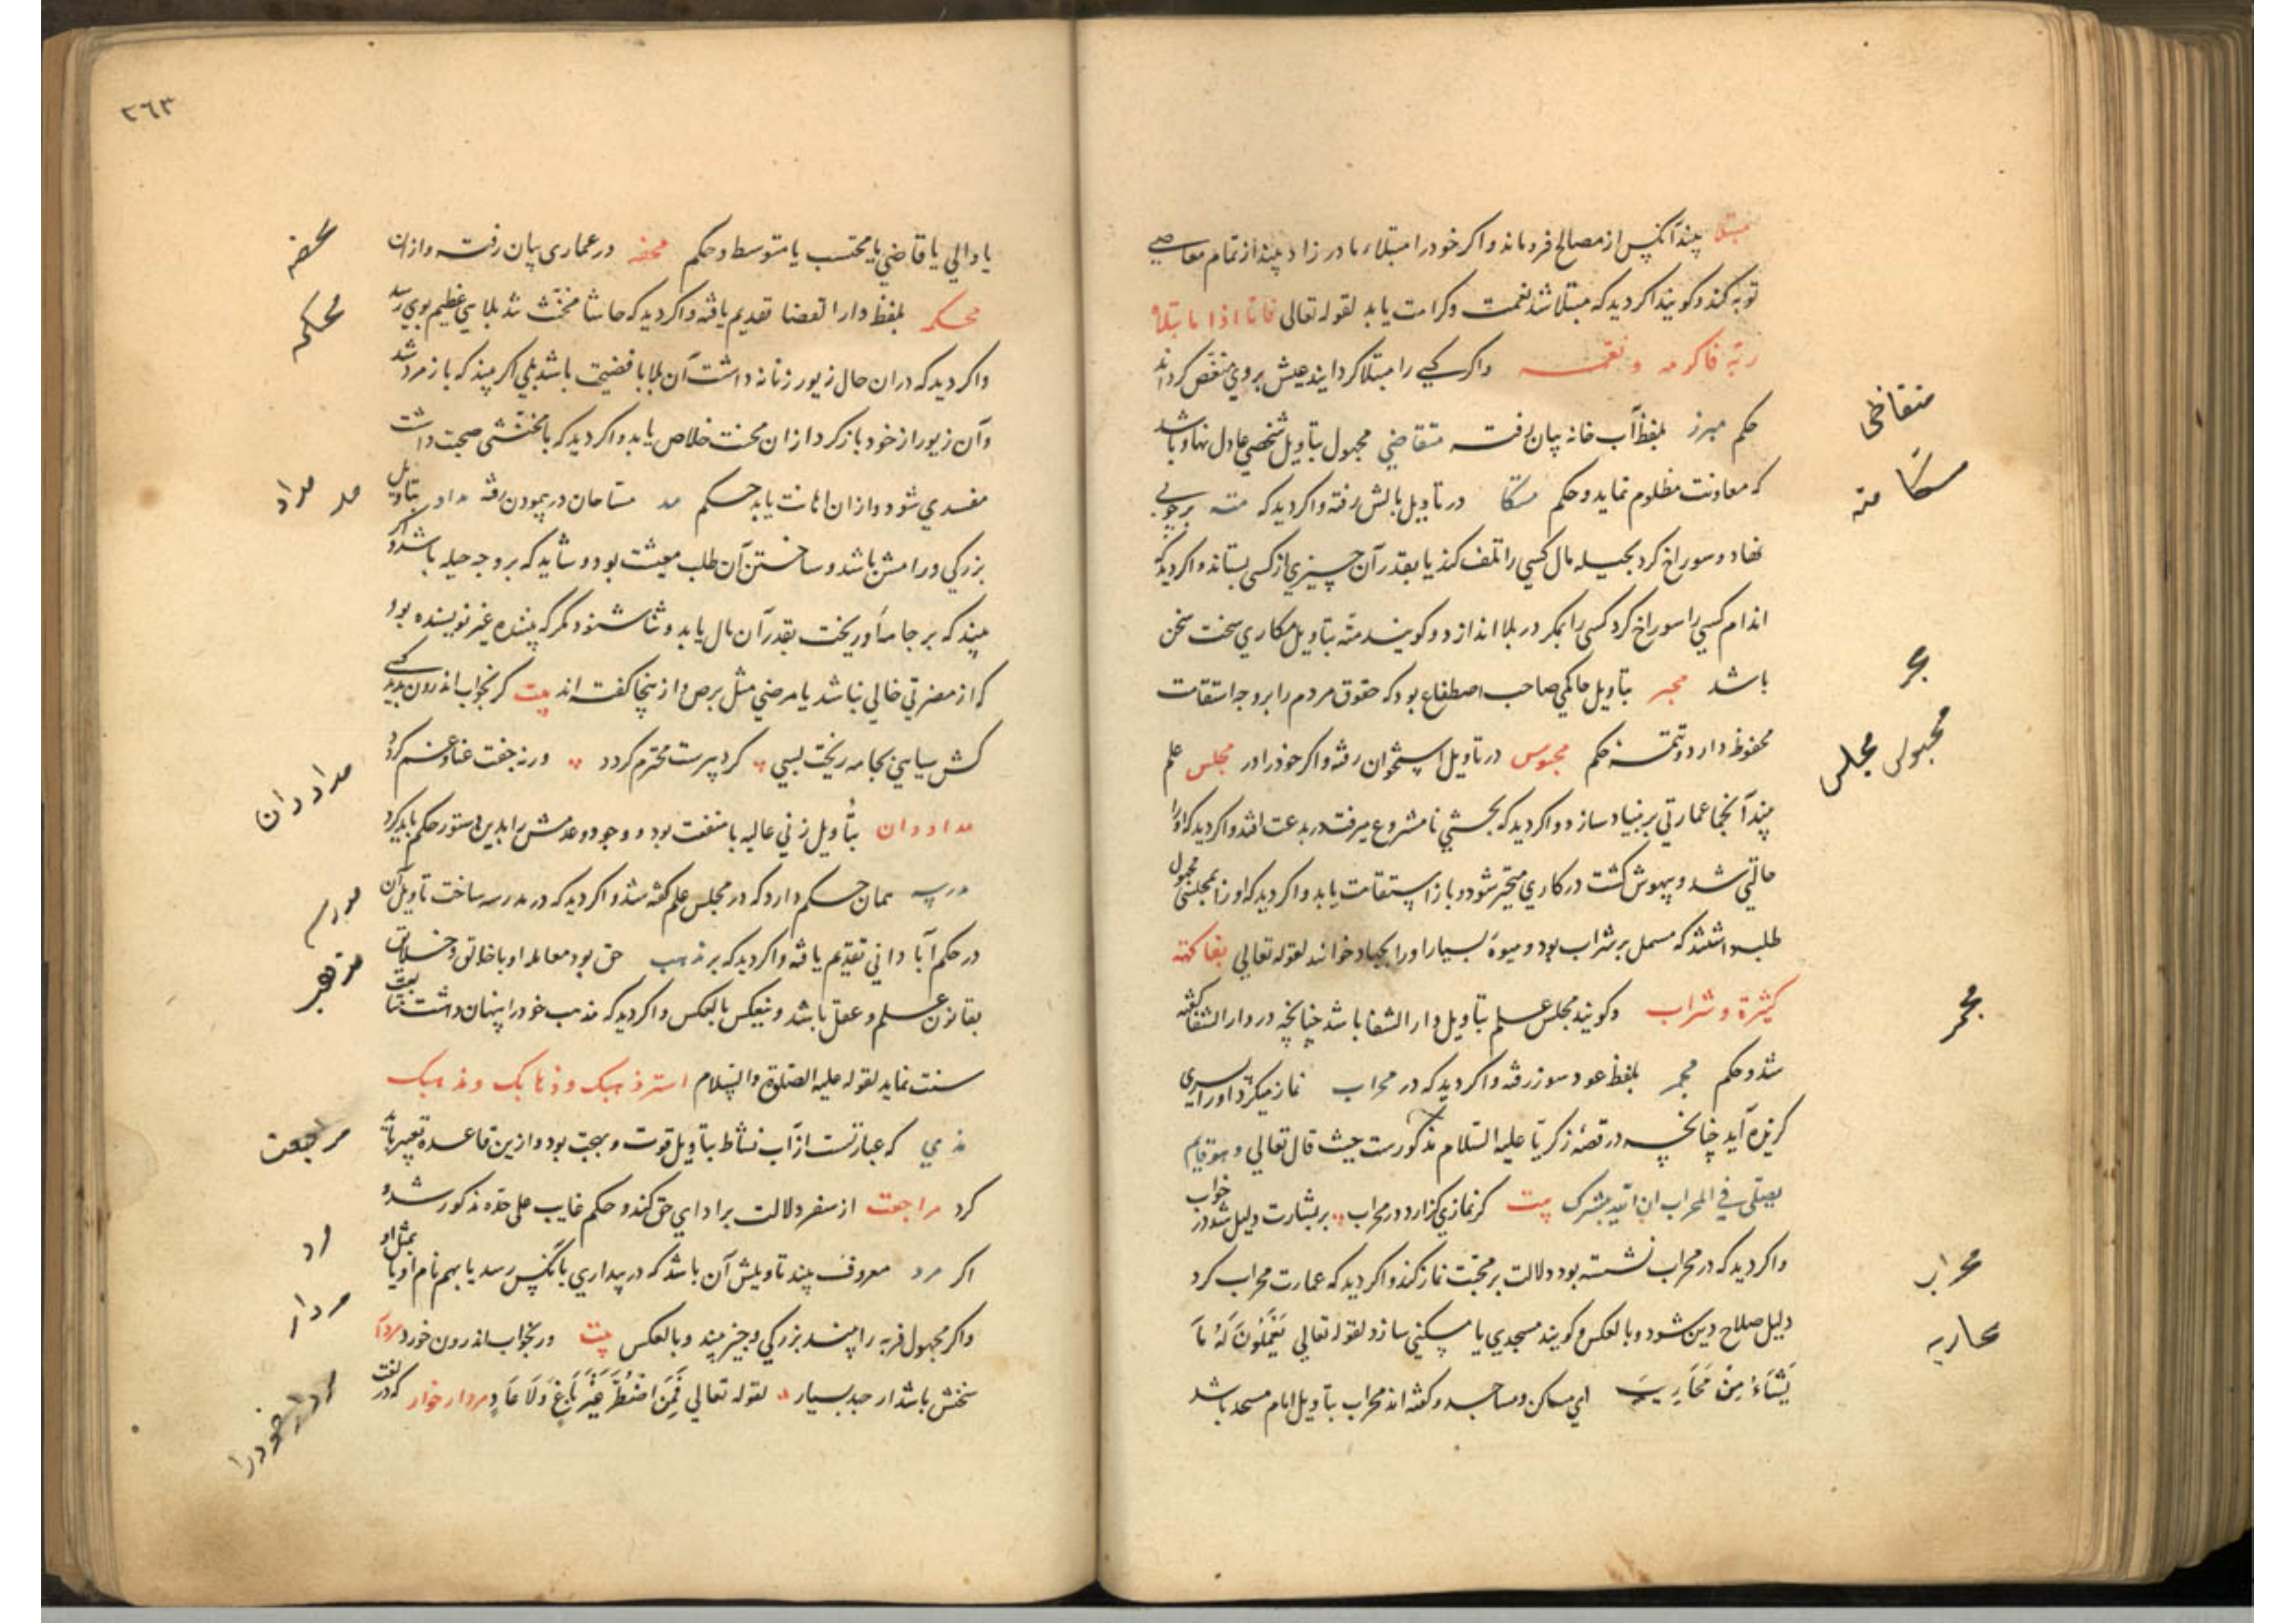 مبتلا بیند آنکس از مصالح فرو ماند واکر خود را مبتلاء مادر زاد بیند از تمام معاصی
توبه کند وکویند اکر دید که مبتلا شد نعمت وکرامت یابد لقوله تعالی فاما اذا ما ابتلاه
ربّه فاکرمه ونعّمه واکر کسی را مبتلا کرداند عیش بروی منغص کرداند
حکم مبرز بلفظ آب خانه بیان رفت متقاضی مجهول بتاویل شخصی عادل نهاد باشد
که معاونت مظلوم نماید وحکم متکا در تاویل بالش رفته واکر دید که مته برچوبی
نهاد وسوراخ کرد بحیله مال کسی را تلف کند یا بقدر آن چیزی از کسی بستاند واکر دید که
اندام کسی را سوراخ کرد کسی را بمکر در بلا اندازد وکویند مته بتاویل مکاری سخت سخن
باشد مجبر بتاویل حاکمی صاحب اصطناع بود که حقوق مردم را بر وجه استقامت
محفوظ دارد وتتمه حکم در تاویل استخوان رفته واکر خود را در مجلس علم
بیند آنجا عمارتی بر بنیاد سازد واکر دید که بحثی نامشروع میرفت در بدعت افتد واکر دید که او را
حالتی شد وبیهوش کشت در کاری متحیر شود وباز استقامت یابد واکر دید که او را بمجلسی مجهول
طلب داشتند که مشتمل بر شراب بود ومیوهٔ بسیار او را بجهاد خوانند لقوله تعالی بفاکهة
کثیرة وشراب وکویند مجلس علم بتاویل دار الشفا باشد چنانچه در دار الشفا کفته
شد وحکم مجمر بلفظ عود سوز رفته واکر دید که در محراب نماز میکزارد او را پسری
کزیده آید چنانچه در قصهٔ زکریا علیه السلام مذکورست حیث قال تعالی وهو قایم
یصلی فی المحراب ان الله یبشرک بیت کر نمازی کزارد در محراب بر بشارت دلیل شد در خواب
واکر دید که در محراب نشسته بود دلالت بر محبت نماز کند واکر دید که عمارت محراب کرد
دلیل صلاح دین شود وبالعکس وکویند مسجدی یا مسکنی سازد لقوله تعالی یَعْمَلُونَ لَهُ مَا
یَشَاءُ مِنْ مَحَارِیبَ ای مساکن ومساجد وکفته اند محراب بتاویل امام مسجد باشد
متقاضی
متکا مته
مجبر
مجلس
مجمر
محراب
محاربه
٢٦٣
یا والی یا قاضی یا محتسب یا متوسط وحکم محفه در عماری بیان رفت وازان
محکمه بلفظ دار القضا تقدیم یافته واکر دید که حاشا مخنث شد بلایی عظیم بوی رسد
واکر دید که دران حال زیور زنانه داشت آن بلا با فضیحت باشد بلی اکر بیند که باز مرد شد
وآن زیور از خود باز کرد ازان محنت خلاص یابد واکر دید که با مخنثی صحبت داشت
مفسدی شود وازان اهانت یابد حکم مد مساحان در پیمودن رفته مداد بتاویل
بزرکی ورامش باشد وساختن آن طلب معیشت بود وشاید که بر وجه حیله باشد واکر
بیند که بر جامهٔ او ریخت بقدر آن مال یابد وثنا شنود مکر که بیننده غیر نویسنده بود
که از مضرتی خالی نباشد یا مرضی مثل برص واز ینجا کفته اند بیت کر بخواب اندرون بدید کسی
کش سیاهی بجامه ریخت بسی کرد پیرست محترم کردد ورنه جفت عنا وغم کردد
مداددان بتاویل زنی عالیه با منفعت بود ووجود وعدمش را بدین دستور حکم باید کرد
مدرسه همان حکم دارد که در مجلس علم کفته شد واکر دید که در مدرسه ساخت تاویل آن
در حکم آبادانی تقدیم یافته واکر دید که بر مذهب حق بود معامله او با خلایق وخلاق
بقانون علم وعقل باشد وینعکس بالعکس واکر دید که مذهب خود را پنهان داشت متابعت
سنت نماید لقوله علیه الصلوة والسلام استر ذهبک وذهابک ومذهبک
مذی که عبارتست از آب نشاط بتاویل قوت وبهجت بود وازین قاعده تعبیر باید
کرد مراجعت از سفر دلالت بر ادای حق کند وحکم غایب علی حده مذکور شد و
اکر مرد معروف بیند تاویلش آن باشد که در بیداری بآنکس رسد یا بهم نام او یا بمثل او
واکر مجهول فربه را بیند بزرکی وچیز بیند وبالعکس بیت ور بخواب اندرون خورد مردار
بخشش باشد از حد بسیار لقوله تعالی فَمَنِ اضْطُرَّ غَیْرَ بَاغٍ وَلَا عَادٍ ومردار خوار که در لغت
محفه
محکمه
مد مداد
مداددان
مراجعت
مرد
مردار